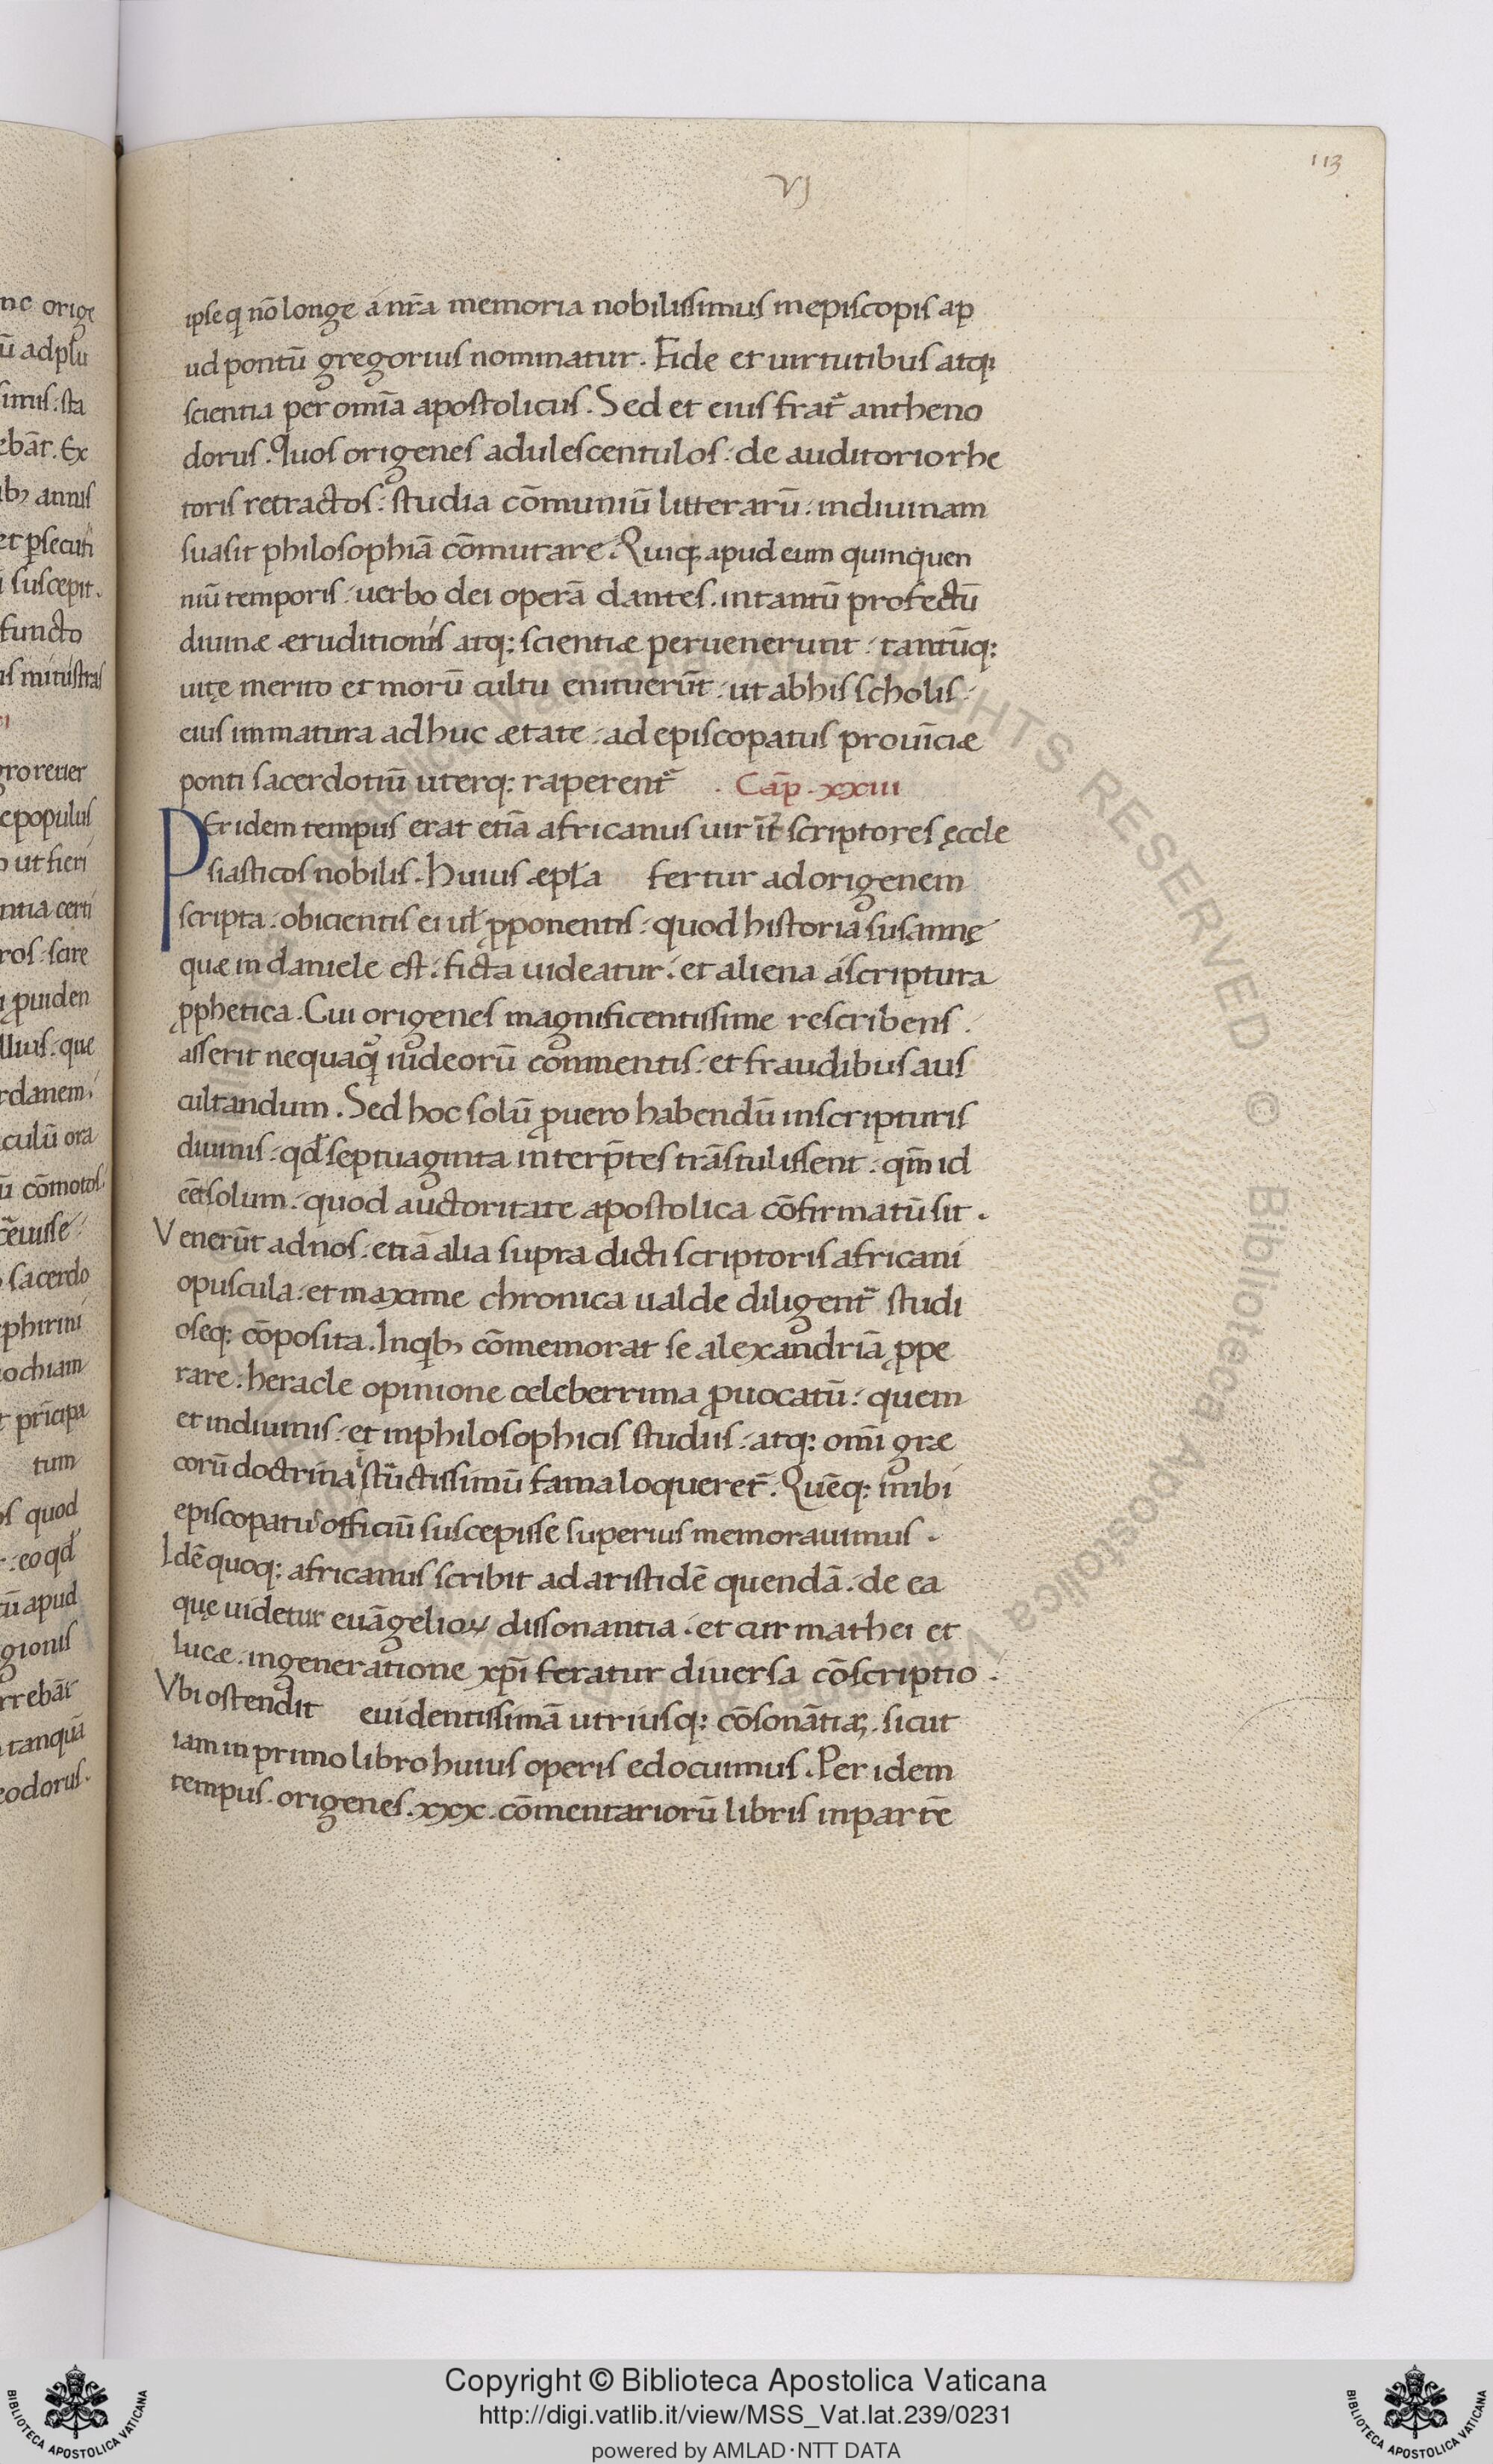 113
VI
ipse q nō longe a nr̄a memoria nobilissimus in episcopis ap
ud pontū gregorius nominatur. Fide et uirtutibus atq;
scientia per om̄ia apostolicus. Sed et eius frat̄ antheno
dorus. Quos origenes adulescentulos. de auditorio rhe
toris retractos. studia cōmuniū litterarū. in diuinam
suasit philosophiā cōmutare. Quiq; apud eum quinquen
niū temporis. uerbo dei operā dantes. in tantū profectū
diuinæ eruditionis atq; scientiæ peruenerunt. tantūq;
uitę merito et morū cultu enituerūt. ut ab his scholis.
eius immatura adhuc ætate. ad episcopatus prouīciæ
ponti sacerdotiū uterq; raperent̄. Cap̄. xxiii
Per idem tempus erat etiā africanus uir īt scriptores ęccle
siasticos nobilis. Huius æpl̄a fertur ad origenem
scripta. obicientis ei ul̄ ꝓponentis. quod historia susannę
quæ in daniele est. ficta uideatur. et aliena a scriptura
ꝓphetica. Cui origenes magnificentissime rescribens.
asserit nequaq̄ iudeorū commentis. et fraudibus aus
cultandum. Sed hoc solū ꝓ uero habendū in scripturis
diuinis. qd̄ septuaginta interp̄tes trāstulissent. qm̄ id
eēt solum. quod auctoritate apostolica cōfirmatū sit.
Venerūt ad nos. etiā alia supra dicti scriptoris africani
opuscula. et maxime chronica ualde diligent̄ studi
oseq; cōposita. In qib; cōmemorat se alexandriā ꝓpe
rare. heracle opinione celeberrima ꝓuocatū. quem
et in diuinis. et in philosophicis studiis. atq; om̄i græ
corū doctrina īstructissimū fama loqueret̄. Quēq; inibi
episcopatus officiū suscepisse superius memorauimus.
Idē quoq; africanus scribit ad aristidē quendā. de ea
quę uidetur euāgelioꝝ dissonantia. et cur mathei et
lucæ. in generatione xp̄i feratur diuersa cōscriptio.
Vbi ostendit euidentissimā utriusq; cōsonātiā. sicut
iam in primo libro huius operis edocuimus. Per idem
tempus. origenes. xxx. cōmentariorū libris in partē
Copyright © Biblioteca Apostolica Vaticana
http://digi.vatlib.it/view/MSS_Vat.lat.239/0231
powered by AMLAD·NTT DATA